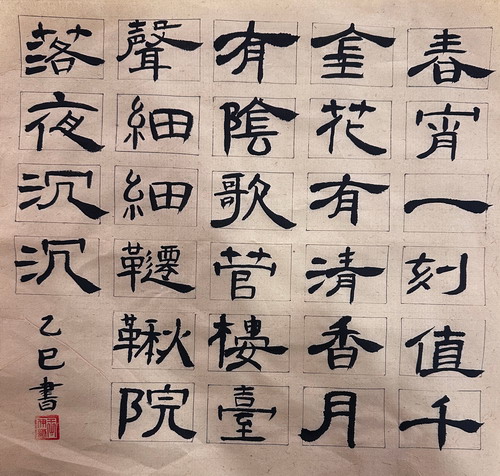 春宵一刻值千
金花有清香月
有陰歌菅樓臺
聲細細韆鞦院
落夜沉沉
乙巳書